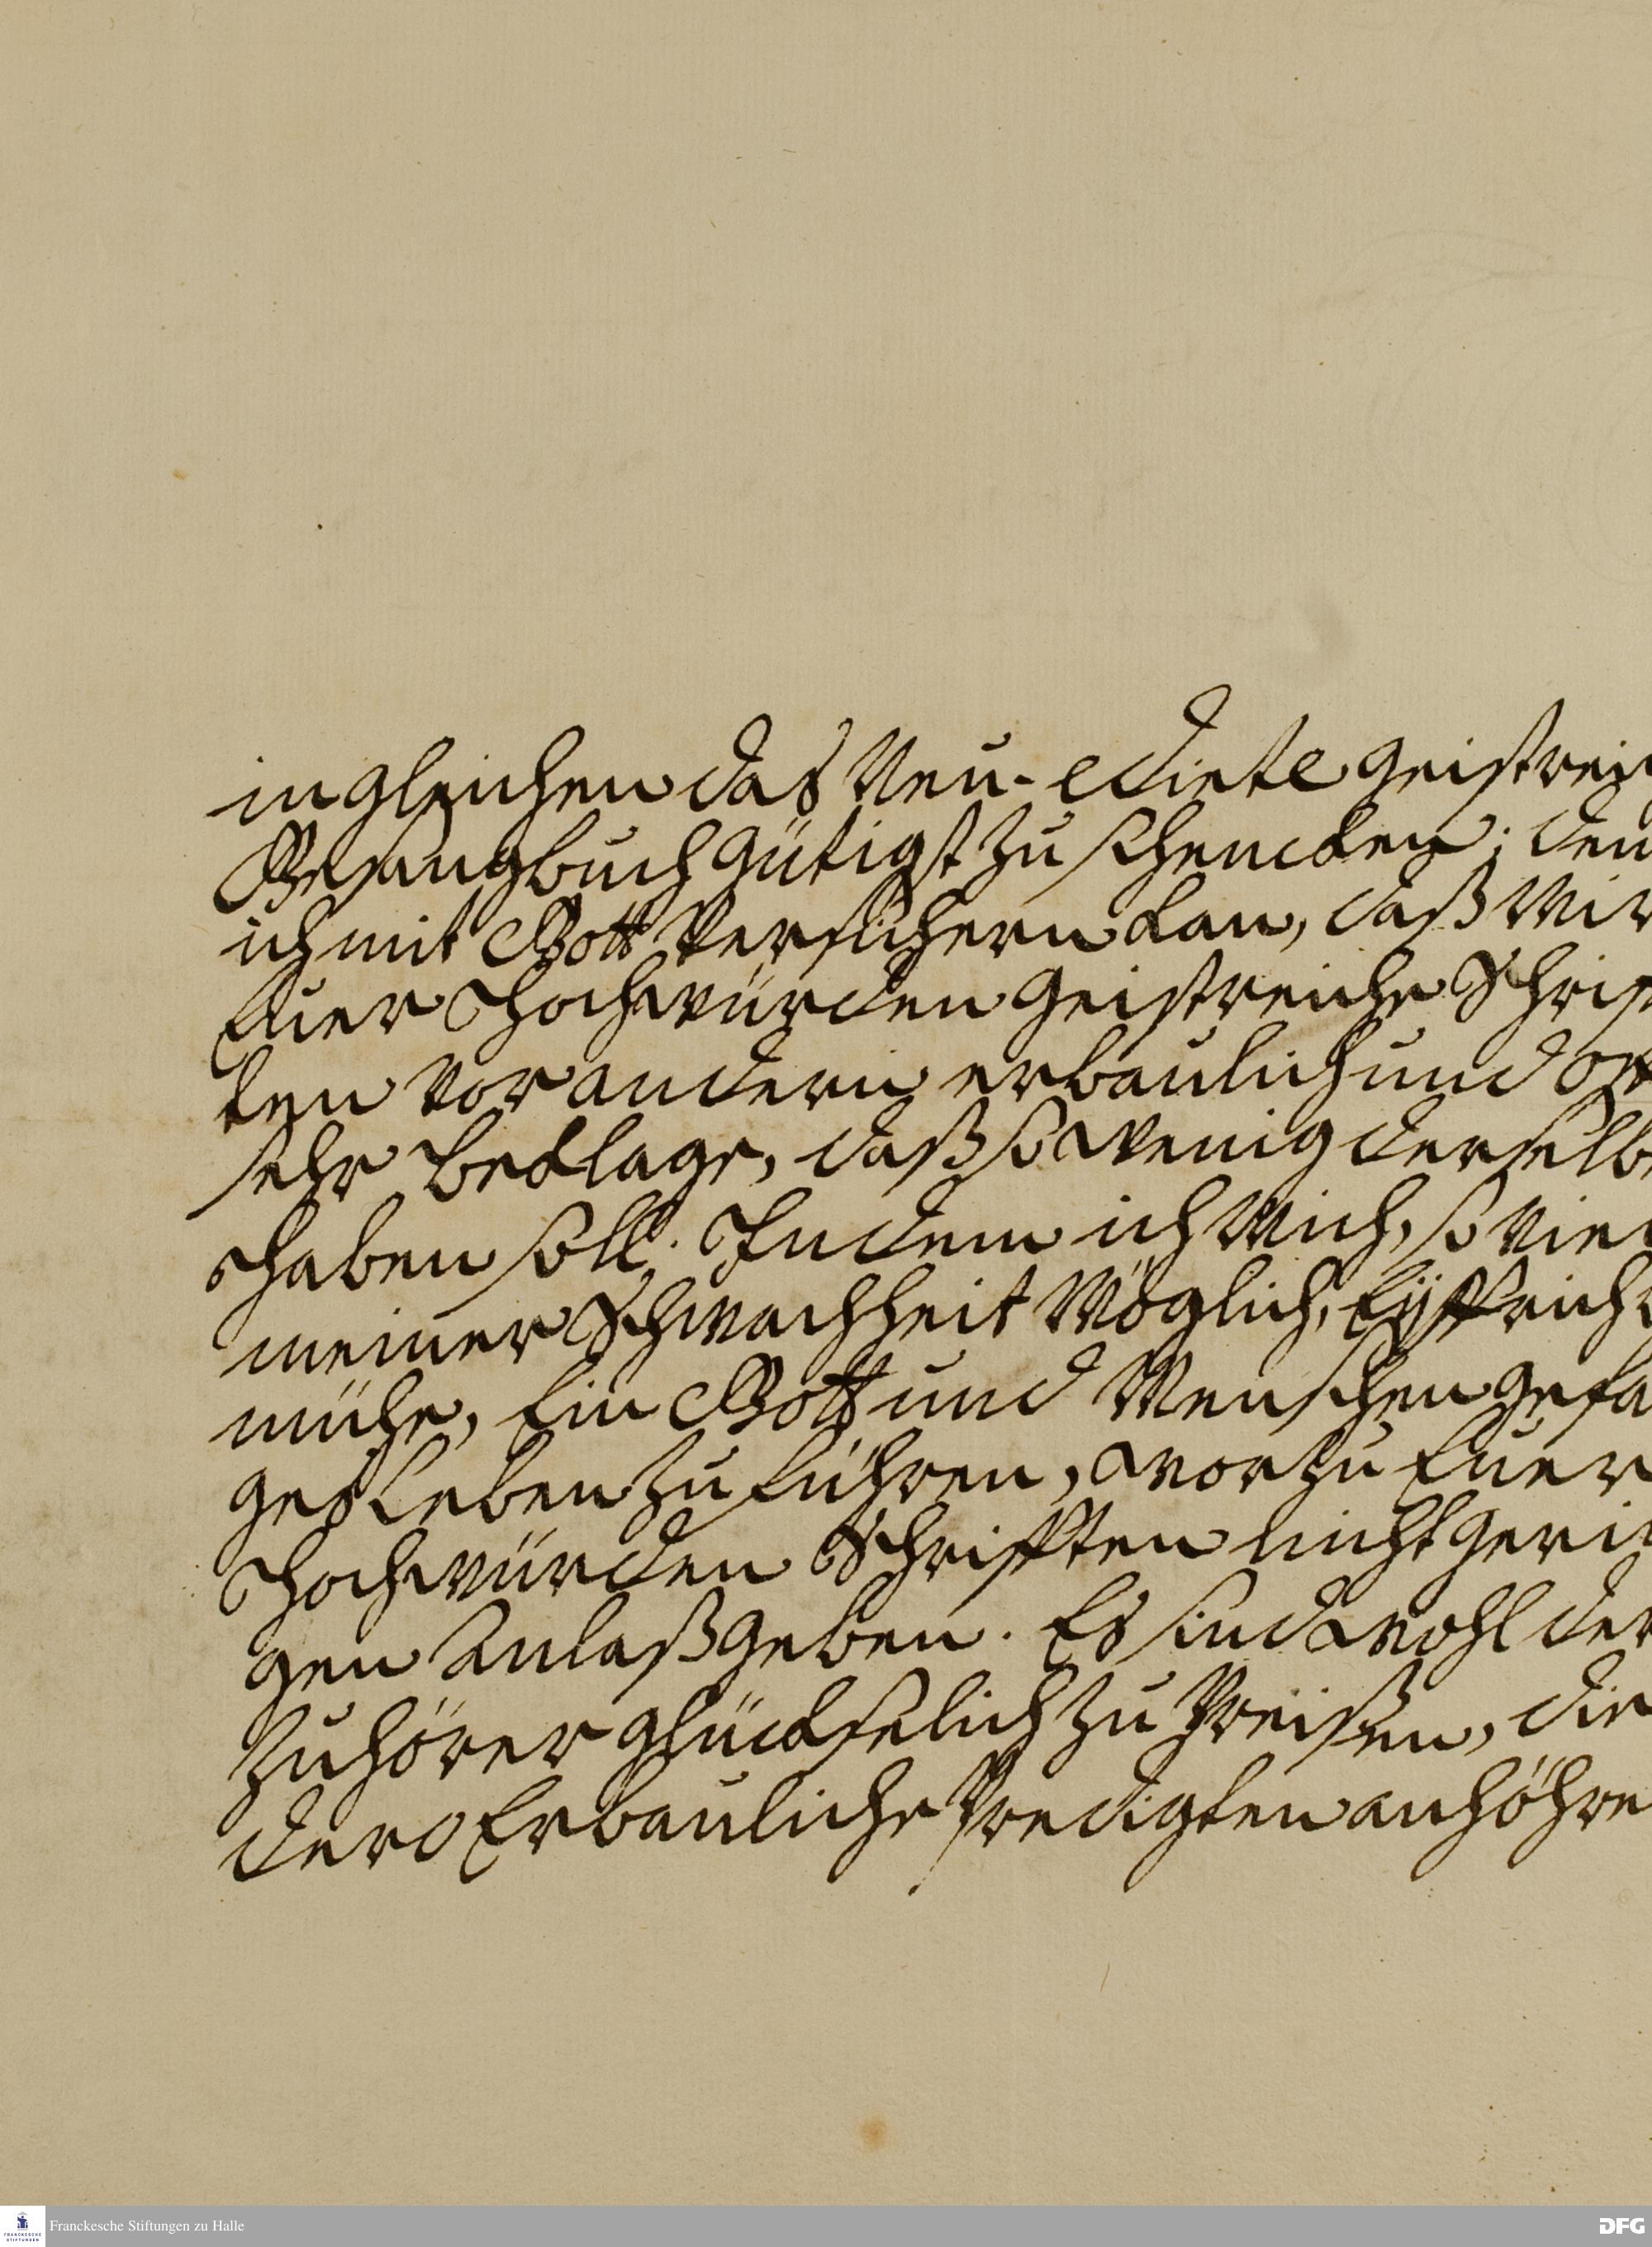 ingleichen das Neu-edirte geistrei
Gesangbuch gütigst zu schencken; den
ich mit Gott versichern kan, daß mir
Euer Hochwürden geistreiche Schrif
ten vor andern erbaulich und
sehr beklage, daß so wenig derselbe
haben soll. Indem ich mich, so viel
meiner Schwachheit möglich, Eyffrich
mühe, Ein Gott und Menschen gefä
ges Leben zu führen, worzu Euer
Hochwürden Schrifften nicht gerin
gen Anlaß geben. Es sind wohl der
Zuhörer glückselich zu Preißen, die
dero Erbauliche Predigten anhöhre
FRANCKESCHE STIFTUNGEN
Franckesche Stiftungen zu Halle
DFG